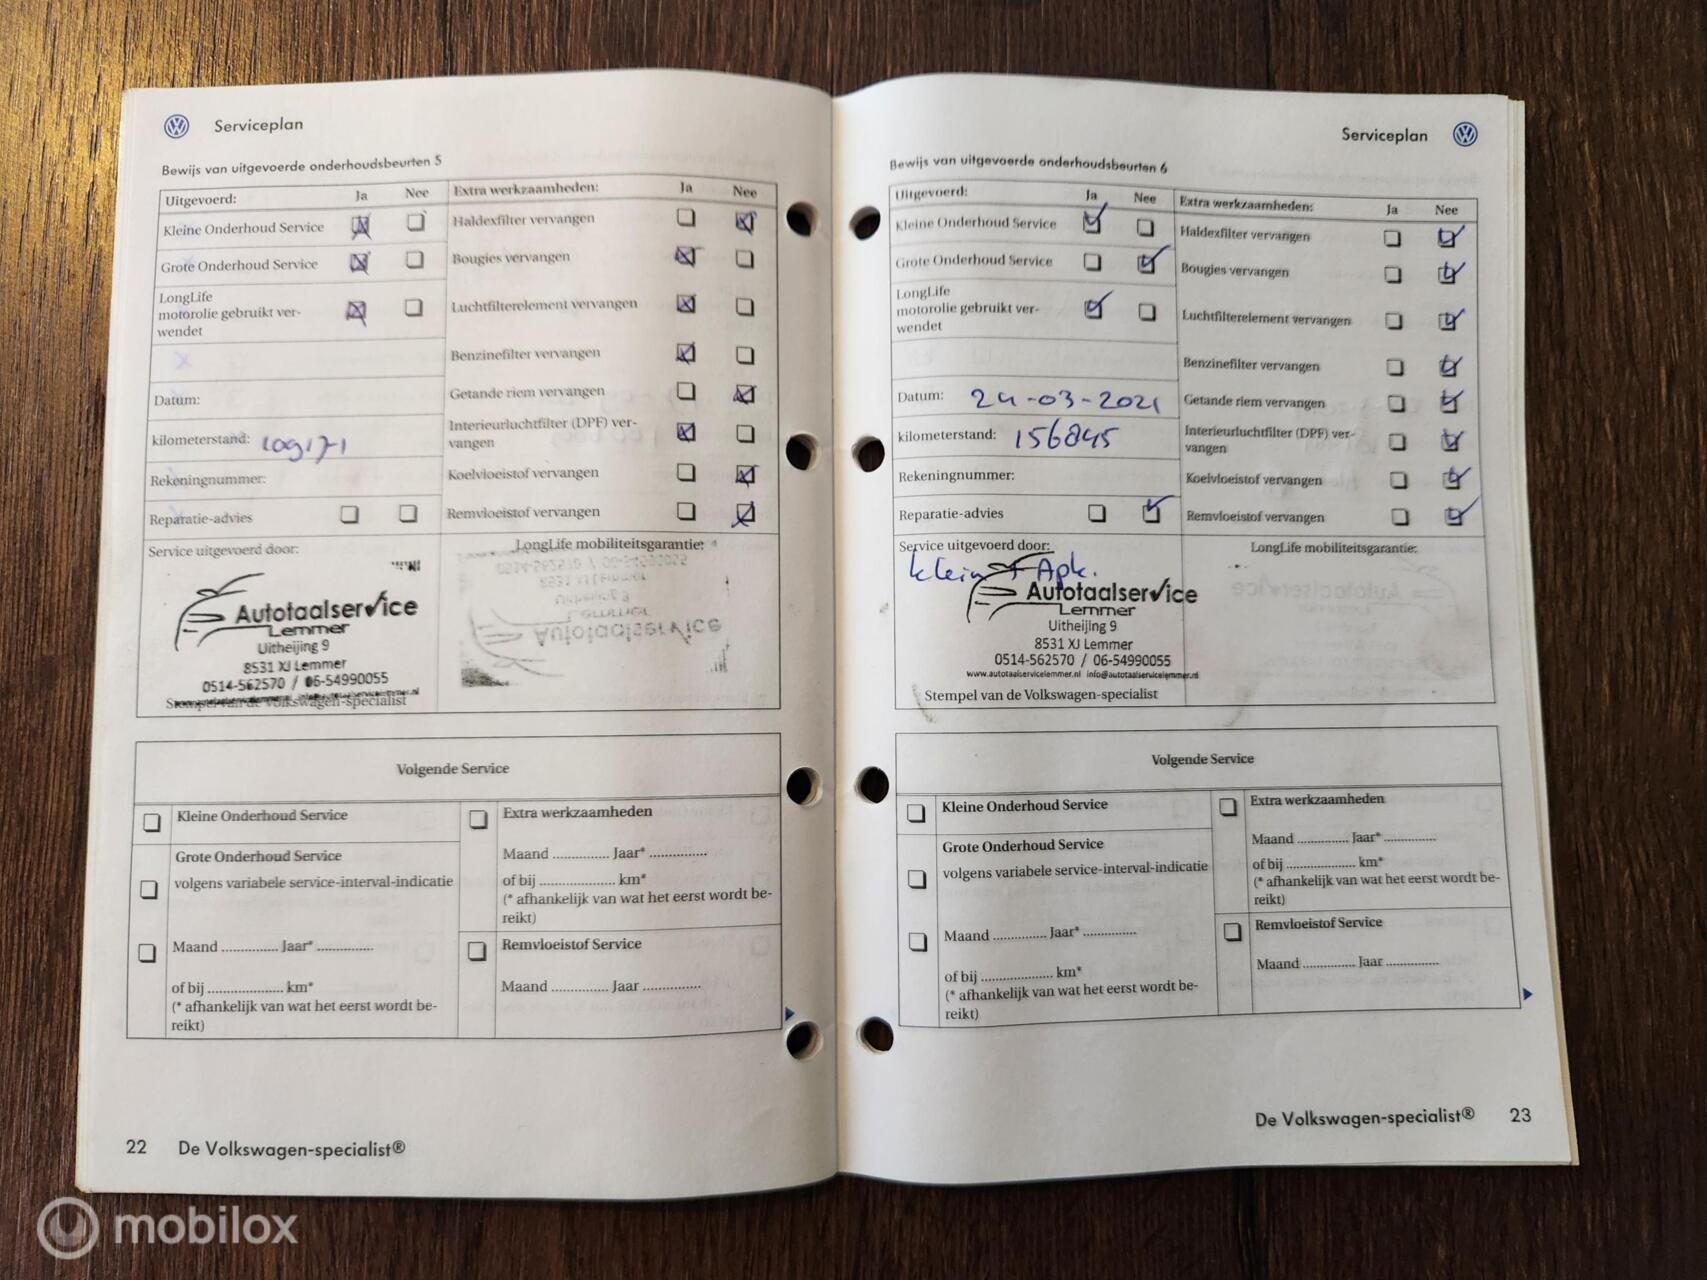 Serviceplan
Bewijs van uitgevoerde onderhoudsbeurten 5
Uitgevoerd: Ja Nee
Kleine Onderhoud Service
Grote Onderhoud Service
LongLife
motorolie gebruikt ver-
wendet
Datum:
kilometerstand:
Rekeningnummer:
Reparatie-advies
Extra werkzaamheden: Ja Nee
Haldexfilter vervangen
Bougies vervangen
Luchtfilterelement vervangen
Benzinefilter vervangen
Getande riem vervangen
Interieurluchtfilter (DPF) ver-
vangen
Koelvloeistof vervangen
Remvloeistof vervangen
Service uitgevoerd door:
Autotaalservice
Lemmer
Uitheijing 9
8531 XJ Lemmer
0514-562570 / 06-54990055
Stempel van de Volkswagen-specialist
LongLife mobiliteitsgarantie:
Volgende Service
Kleine Onderhoud Service
Grote Onderhoud Service
volgens variabele service-interval-indicatie
Maand .............. Jaar* ..............
of bij ................... km*
(* afhankelijk van wat het eerst wordt be-
reikt)
Extra werkzaamheden
Maand .............. Jaar* ..............
of bij ................... km*
(* afhankelijk van wat het eerst wordt be-
reikt)
Remvloeistof Service
Maand .............. Jaar ..............
22 De Volkswagen-specialist®
Serviceplan
Bewijs van uitgevoerde onderhoudsbeurten 6
Uitgevoerd: Ja Nee
Kleine Onderhoud Service
Grote Onderhoud Service
LongLife
motorolie gebruikt ver-
wendet
Datum: 24-03-2021
kilometerstand: 156845
Rekeningnummer:
Reparatie-advies
Extra werkzaamheden: Ja Nee
Haldexfilter vervangen
Bougies vervangen
Luchtfilterelement vervangen
Benzinefilter vervangen
Getande riem vervangen
Interieurluchtfilter (DPF) ver-
vangen
Koelvloeistof vervangen
Remvloeistof vervangen
Service uitgevoerd door:
klein + Apk.
Autotaalservice
Lemmer
Uitheijing 9
8531 XJ Lemmer
0514-562570 / 06-54990055
www.autotaalservicelemmer.nl info@autotaalservicelemmer.nl
Stempel van de Volkswagen-specialist
LongLife mobiliteitsgarantie:
Volgende Service
Kleine Onderhoud Service
Grote Onderhoud Service
volgens variabele service-interval-indicatie
Maand .............. Jaar* ..............
of bij ................... km*
(* afhankelijk van wat het eerst wordt be-
reikt)
Extra werkzaamheden
Maand .............. Jaar* ..............
of bij ................... km*
(* afhankelijk van wat het eerst wordt be-
reikt)
Remvloeistof Service
Maand .............. Jaar ..............
De Volkswagen-specialist® 23
mobilox